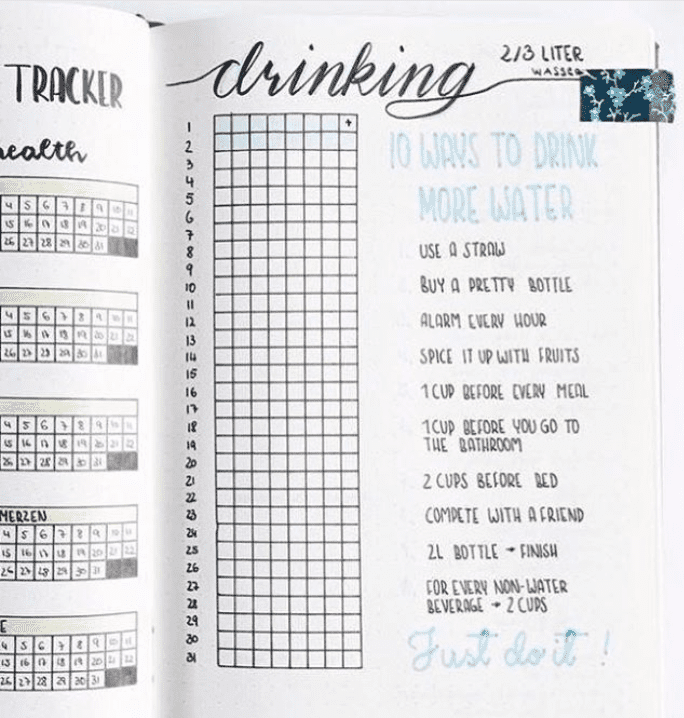 TRACKER
ealth
4 5 6 7 8 9 10 11
15 16 17 18 19 20 21 22
26 27 28 29 30 31
4 5 6 7 8 9 10 11
15 16 17 18 19 20 21 22
26 27 28 29 30 31
4 5 6 7 8 9 10 11
15 16 17 18 19 20 21 22
26 27 28 29 30 31
MERZEN
4 5 6 7 8 9 10 11
15 16 17 18 19 20 21 22
26 27 28 29 30 31
E
4 5 6 7 8 9 10 11
15 16 17 18 19 20 21 22
26 27 28 29 30 31
drinking
2/3 LITER
WASSER
1 +
2
3
4
5
6
7
8
9
10
11
12
13
14
15
16
17
18
19
20
21
22
23
24
25
26
27
28
29
30
31
10 WAYS TO DRINK
MORE WATER
USE A STRAW
BUY A PRETTY BOTTLE
ALARM EVERY HOUR
SPICE IT UP WITH FRUITS
1 CUP BEFORE EVERY MEAL
1 CUP BEFORE YOU GO TO
THE BATHROOM
2 CUPS BEFORE BED
COMPETE WITH A FRIEND
2L BOTTLE → FINISH
FOR EVERY NON-WATER
BEVERAGE → 2 CUPS
Just do it !